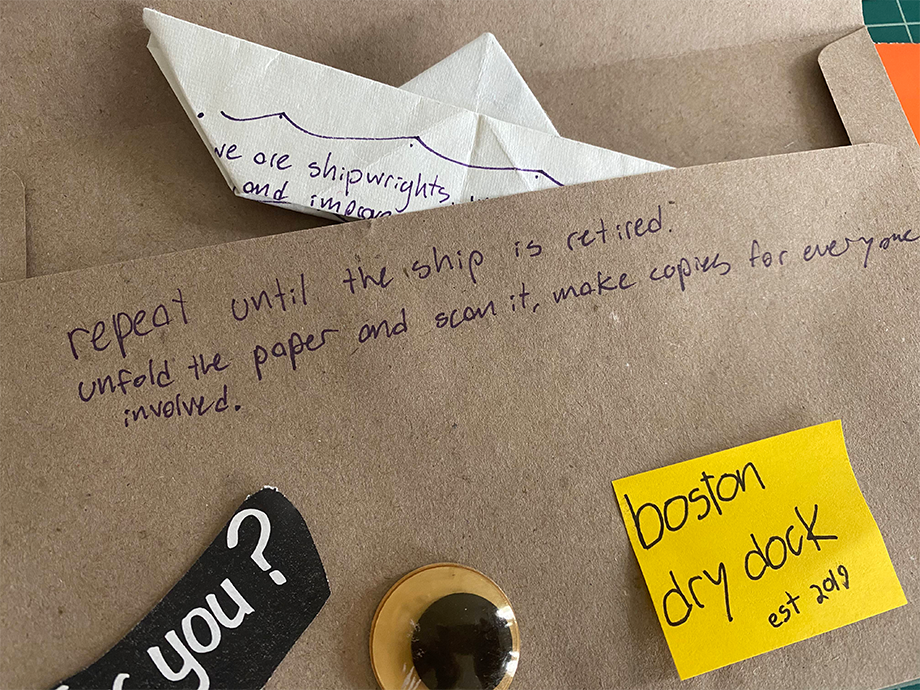 we are shipwrights,
and improve
repeat until the ship is retired.
unfold the paper and scan it, make copies for everyone
involved.
you?
boston
dry dock
est 2019